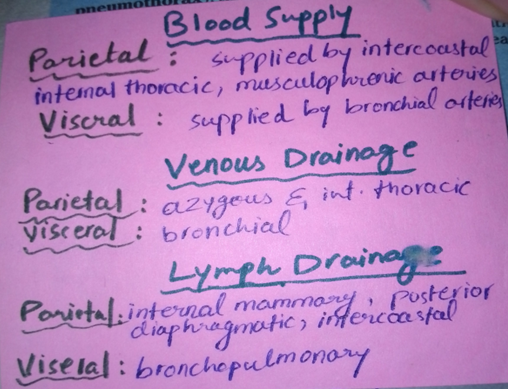 pneumothorax
Blood Supply
Parietal : supplied by intercoastal
internal thoracic, musculophrenic arteries
Viscral : supplied by bronchial arteries
Venous Drainage
Parietal : azygous & int. thoracic
Visceral : bronchial
Lymph Drainage
Parietal : internal mammary, Posterior
diaphragmatic, intercoastal
Viseral : bronchopulmonary